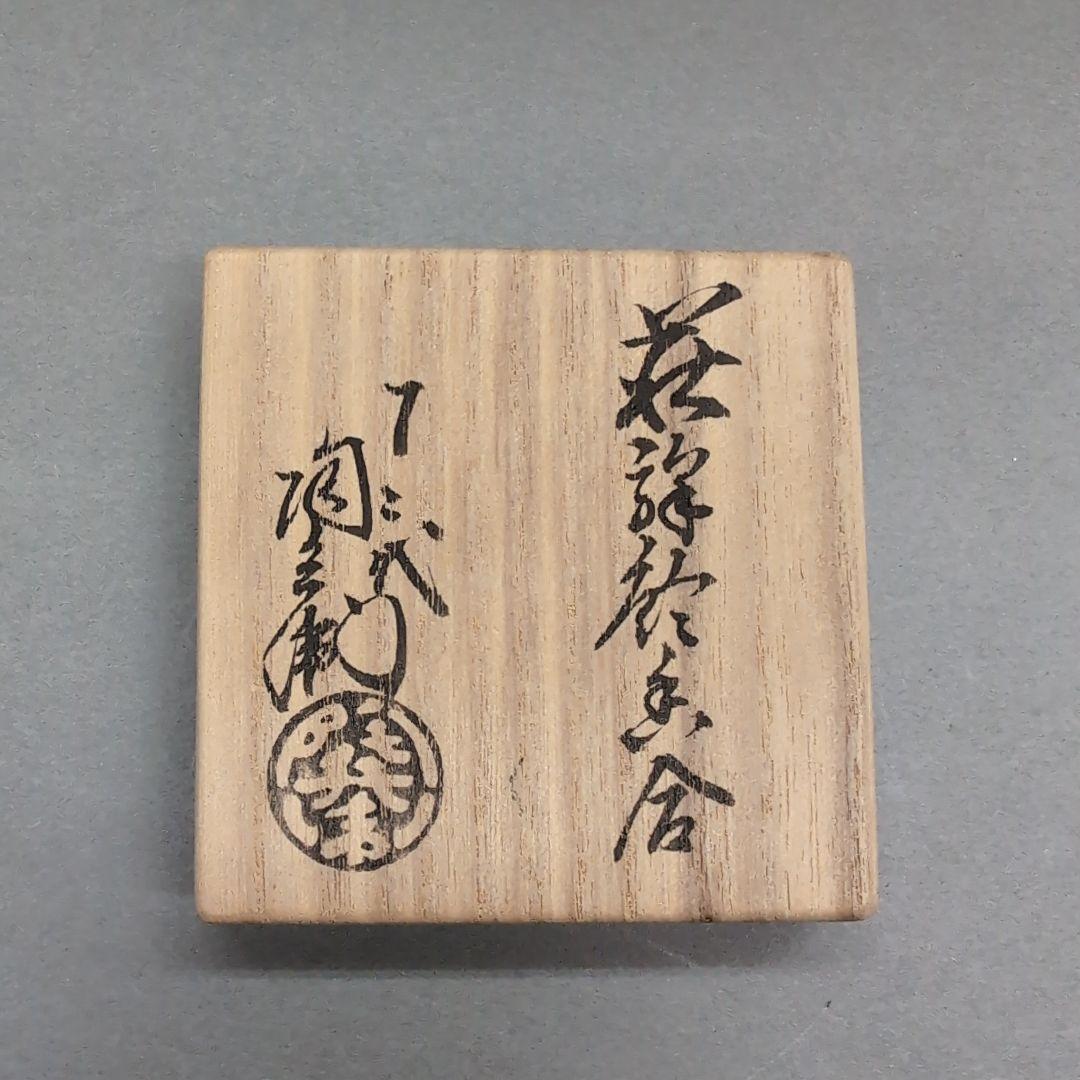 萩驛鈴香合
十二代
陶兵衛